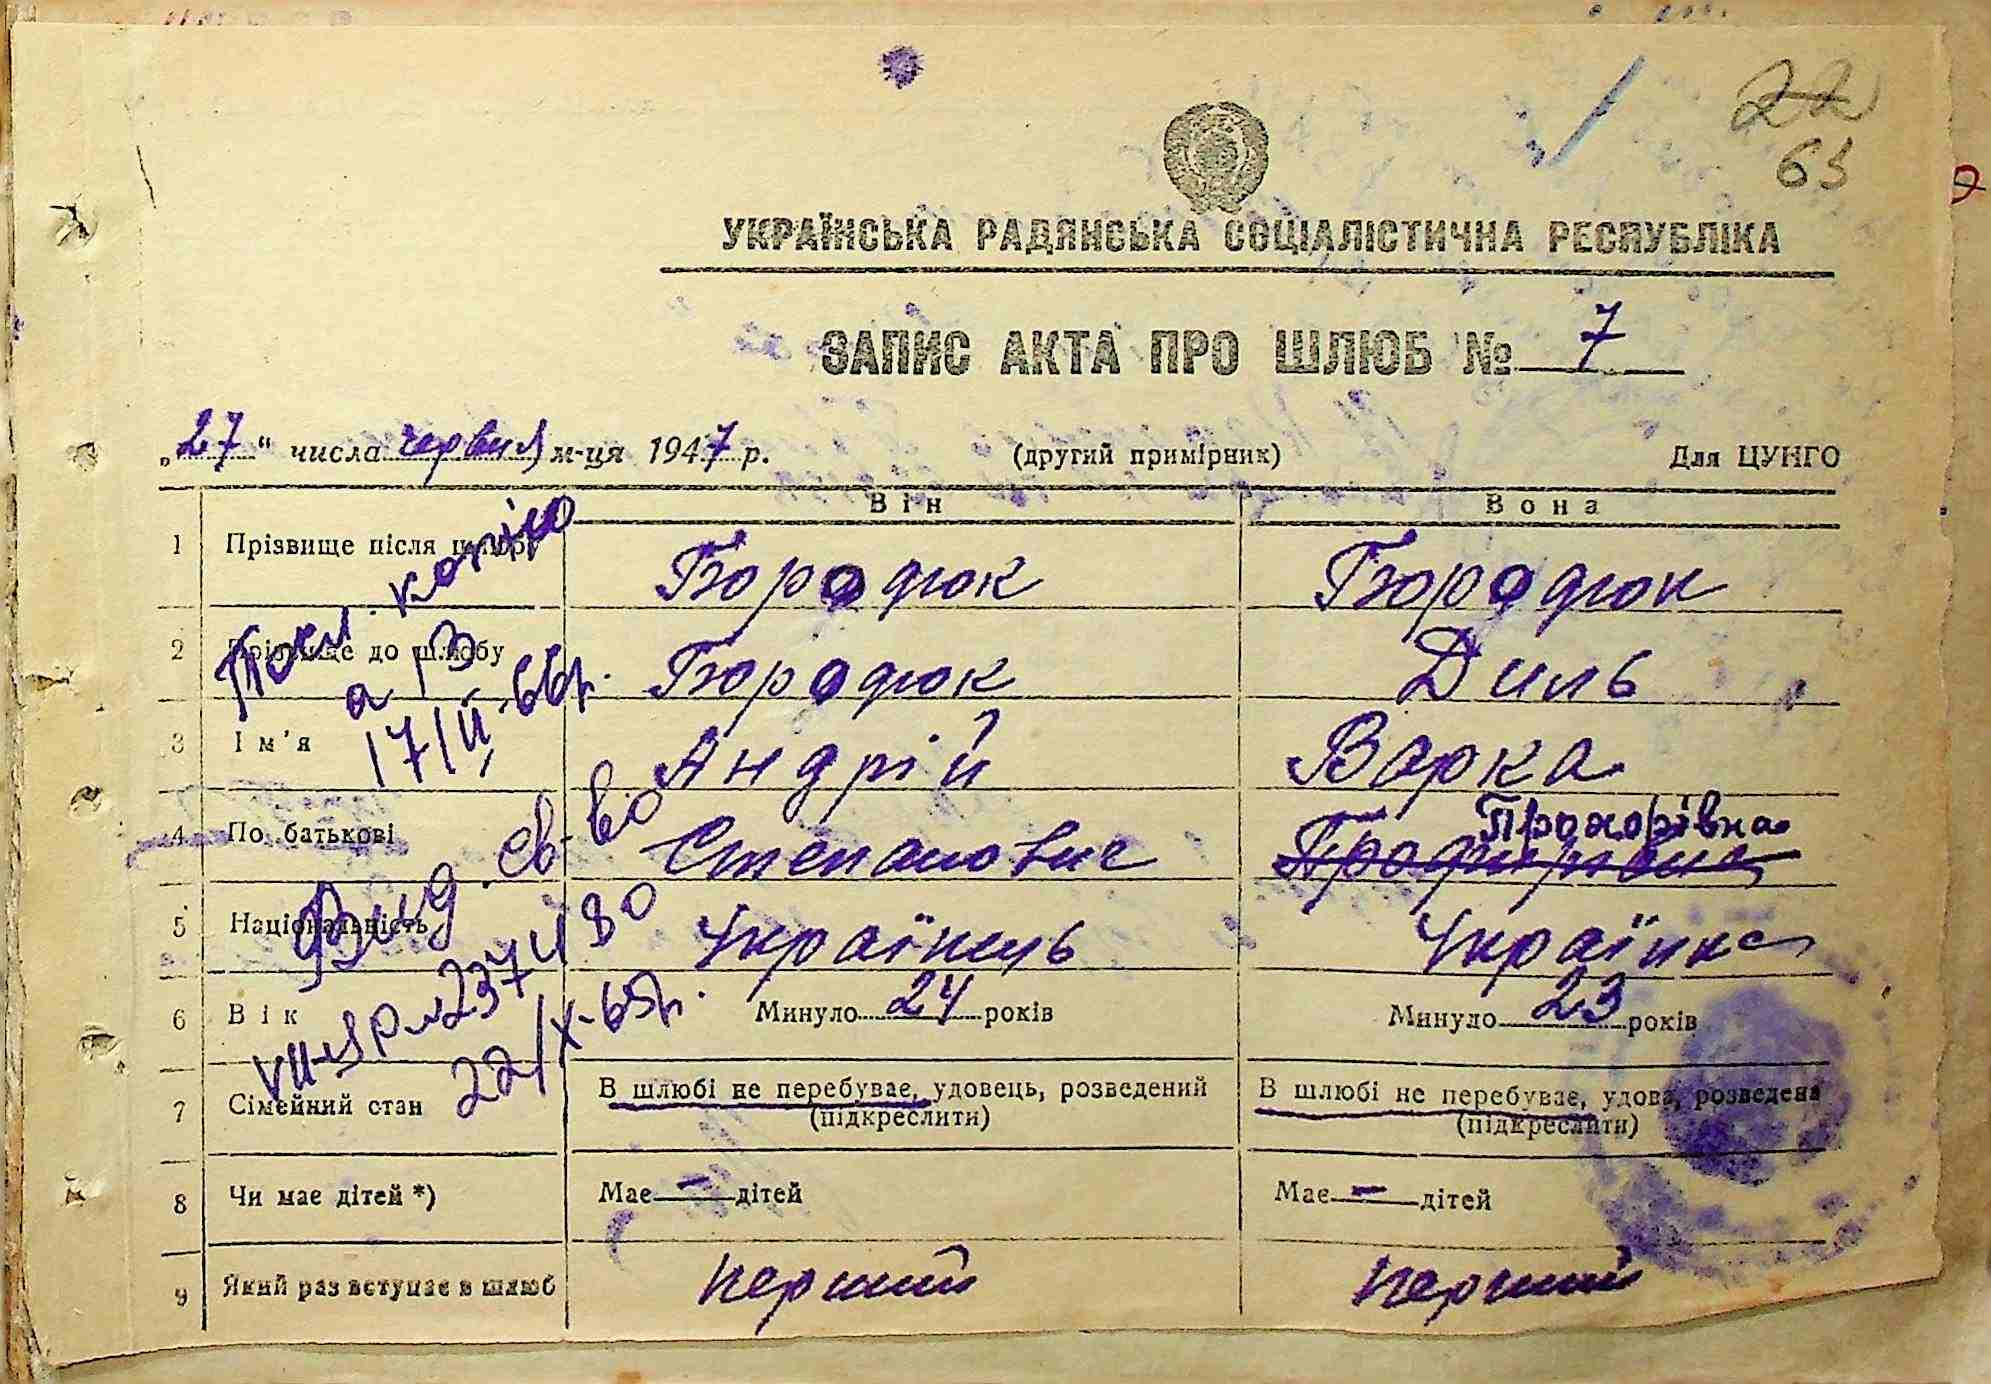 22
63
УКРАЇНСЬКА РАДЯНСЬКА СОЦІАЛІСТИЧНА РЕСПУБЛІКА
ЗАПИС АКТА ПРО ШЛЮБ № 7
„27“ числа червня м-ця 1947 р. (другий примірник) Для ЦУНГО
Він Вона
1 Прізвище після шлюбу Бородюк Бородюк
2 Прізвище до шлюбу Бородюк Диль
3 Ім'я Андрій Варка
Прохорівна
4 По батькові Степанович
5 Національність Українець Українка
6 Вік Минуло 24 років Минуло 23 років
7 Сімейний стан В шлюбі не перебуває, удовець, розведений В шлюбі не перебуває, удова, розведена
(підкреслити) (підкреслити)
8 Чи має дітей *) Має — дітей Має — дітей
9 Який раз вступає в шлюб перший перший
копію
17/II 66р.
Выд. св-во
237480
22/X-65р.